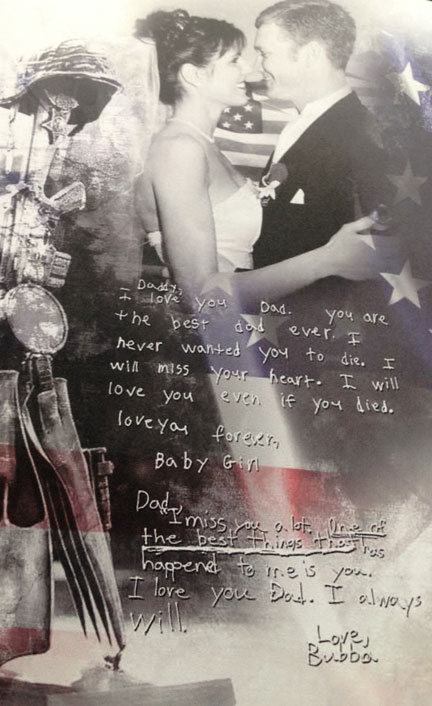 Daddy,
I love you Dad. you are
the best dad ever. I
never wanted you to die. I
will miss your heart. I will
love you even if you died.
love you forever,
Baby Girl
Dad,
I miss you a lot. One of
the best things that has
happend to me is you.
I love you Dad. I always
will.
Love,
Bubba